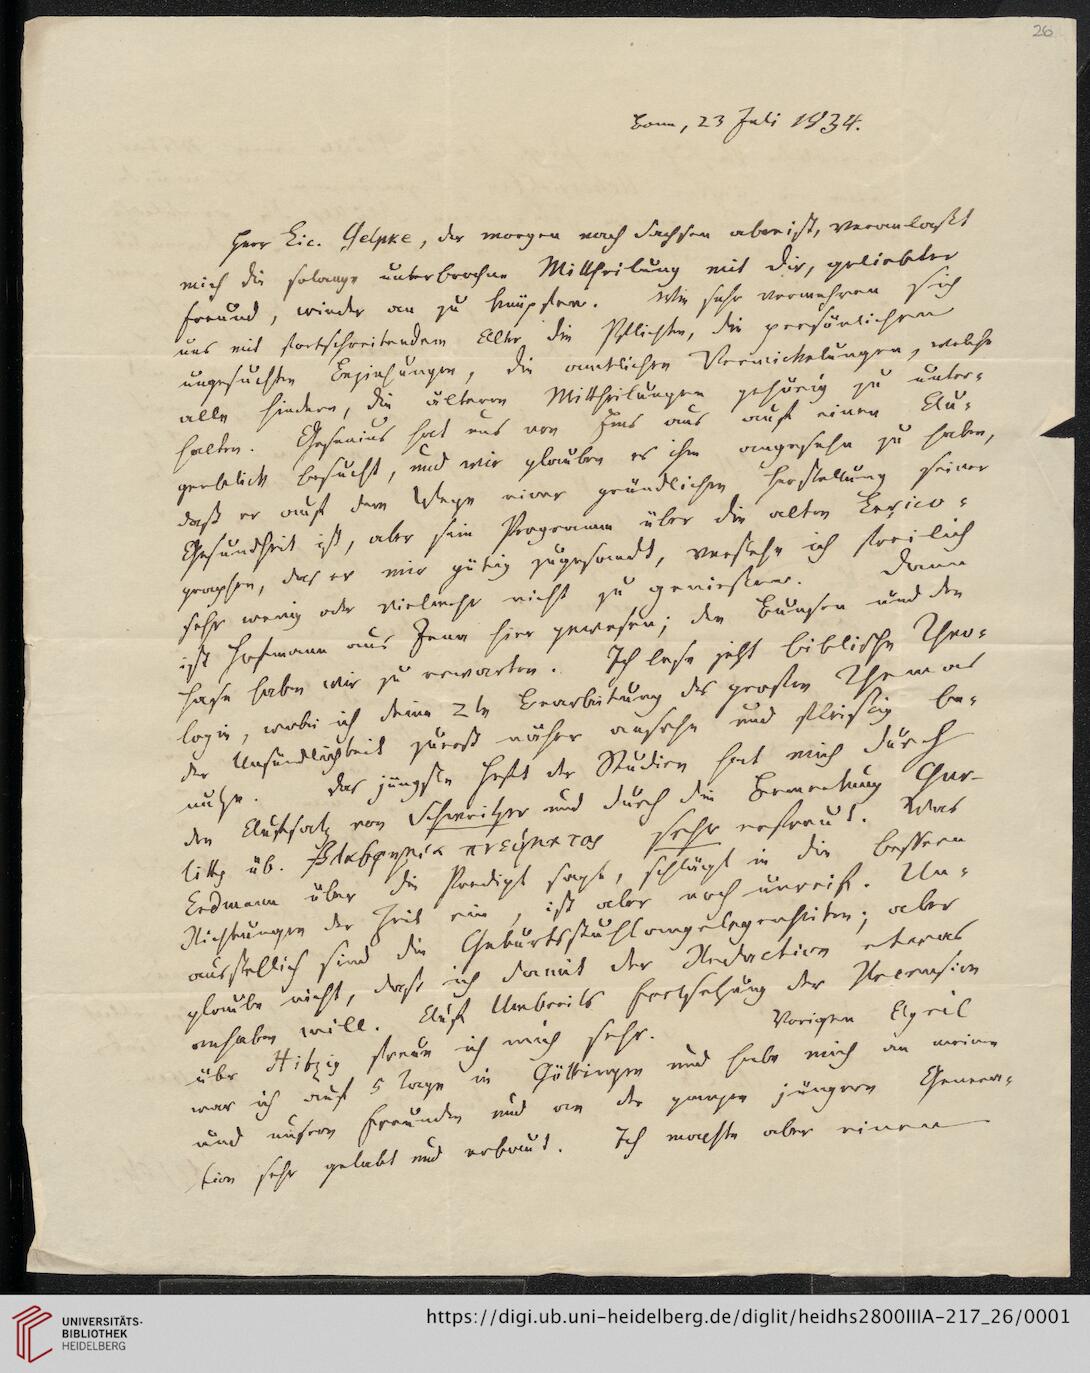 26
Bonn, 23 Juli 1834.
Herr Lic. Gelpke, der morgen nach Sachsen abreist, veranlaßt
mich die solange unterbrochne Mittheilung mit Dir, geliebter
Freund, wieder an zu knüpfen. Wie sehr vermehren sich
uns mit fortschreitendem Alter die Pflichten, die persönlichen
ungesuchten Beziehungen, die amtlichen Verwickelungen, welche
alle hindern, die älteren Mittheilungen gehörig zu unter-
halten. Gesenius hat uns von Ems aus auf einen Au-
genblick besucht, und wir glauben es ihm angesehn zu haben,
daß er auf dem Wege einer gründlichen Herstellung seiner
Gesundheit ist, aber sein Programm über die alten Lexico-
graphen, das er mir gütig zugesandt, verstehe ich freilich
sehr wenig oder vielmehr nicht zu geniessen. Dann
ist Hofmann aus Jena hier gewesen; den Bunsen und den
Hase haben wir zu erwarten. Ich lese jetzt biblische Theo-
logie, wobei ich deine 2te Bearbeitung des großen Themas
der Unsündlichkeit zuerst näher ansehe und fleißig be-
nutze. Das jüngste Heft der Studien hat mich durch
den Aufsatz von Schweitzer und durch die Bemerkung Gur-
litts üb. βλασφημία πνεύματος sehr erfreut. Was
Erdmann über die Predigt sagt, schlägt in die bessern
Richtungen der Zeit ein, ist aber noch unreif. Un-
ausstehlich sind die Geburtsstuhlangelegenheiten; aber
glaube nicht, daß ich damit der Redaction etwas
anhaben will. Auf Umbreits Fortsetzung der Recension
über Hitzig freue ich mich sehr. Vorigen April
war ich auf 5 Tage in Göttingen und habe mich an meinen
und unsern Freunden und an der ganzen jüngern Genera-
tion sehr gelabt und erbaut. Ich machte aber einen
UNIVERSITÄTS-
BIBLIOTHEK
HEIDELBERG
https://digi.ub.uni-heidelberg.de/diglit/heidhs2800IIIA-217_26/0001